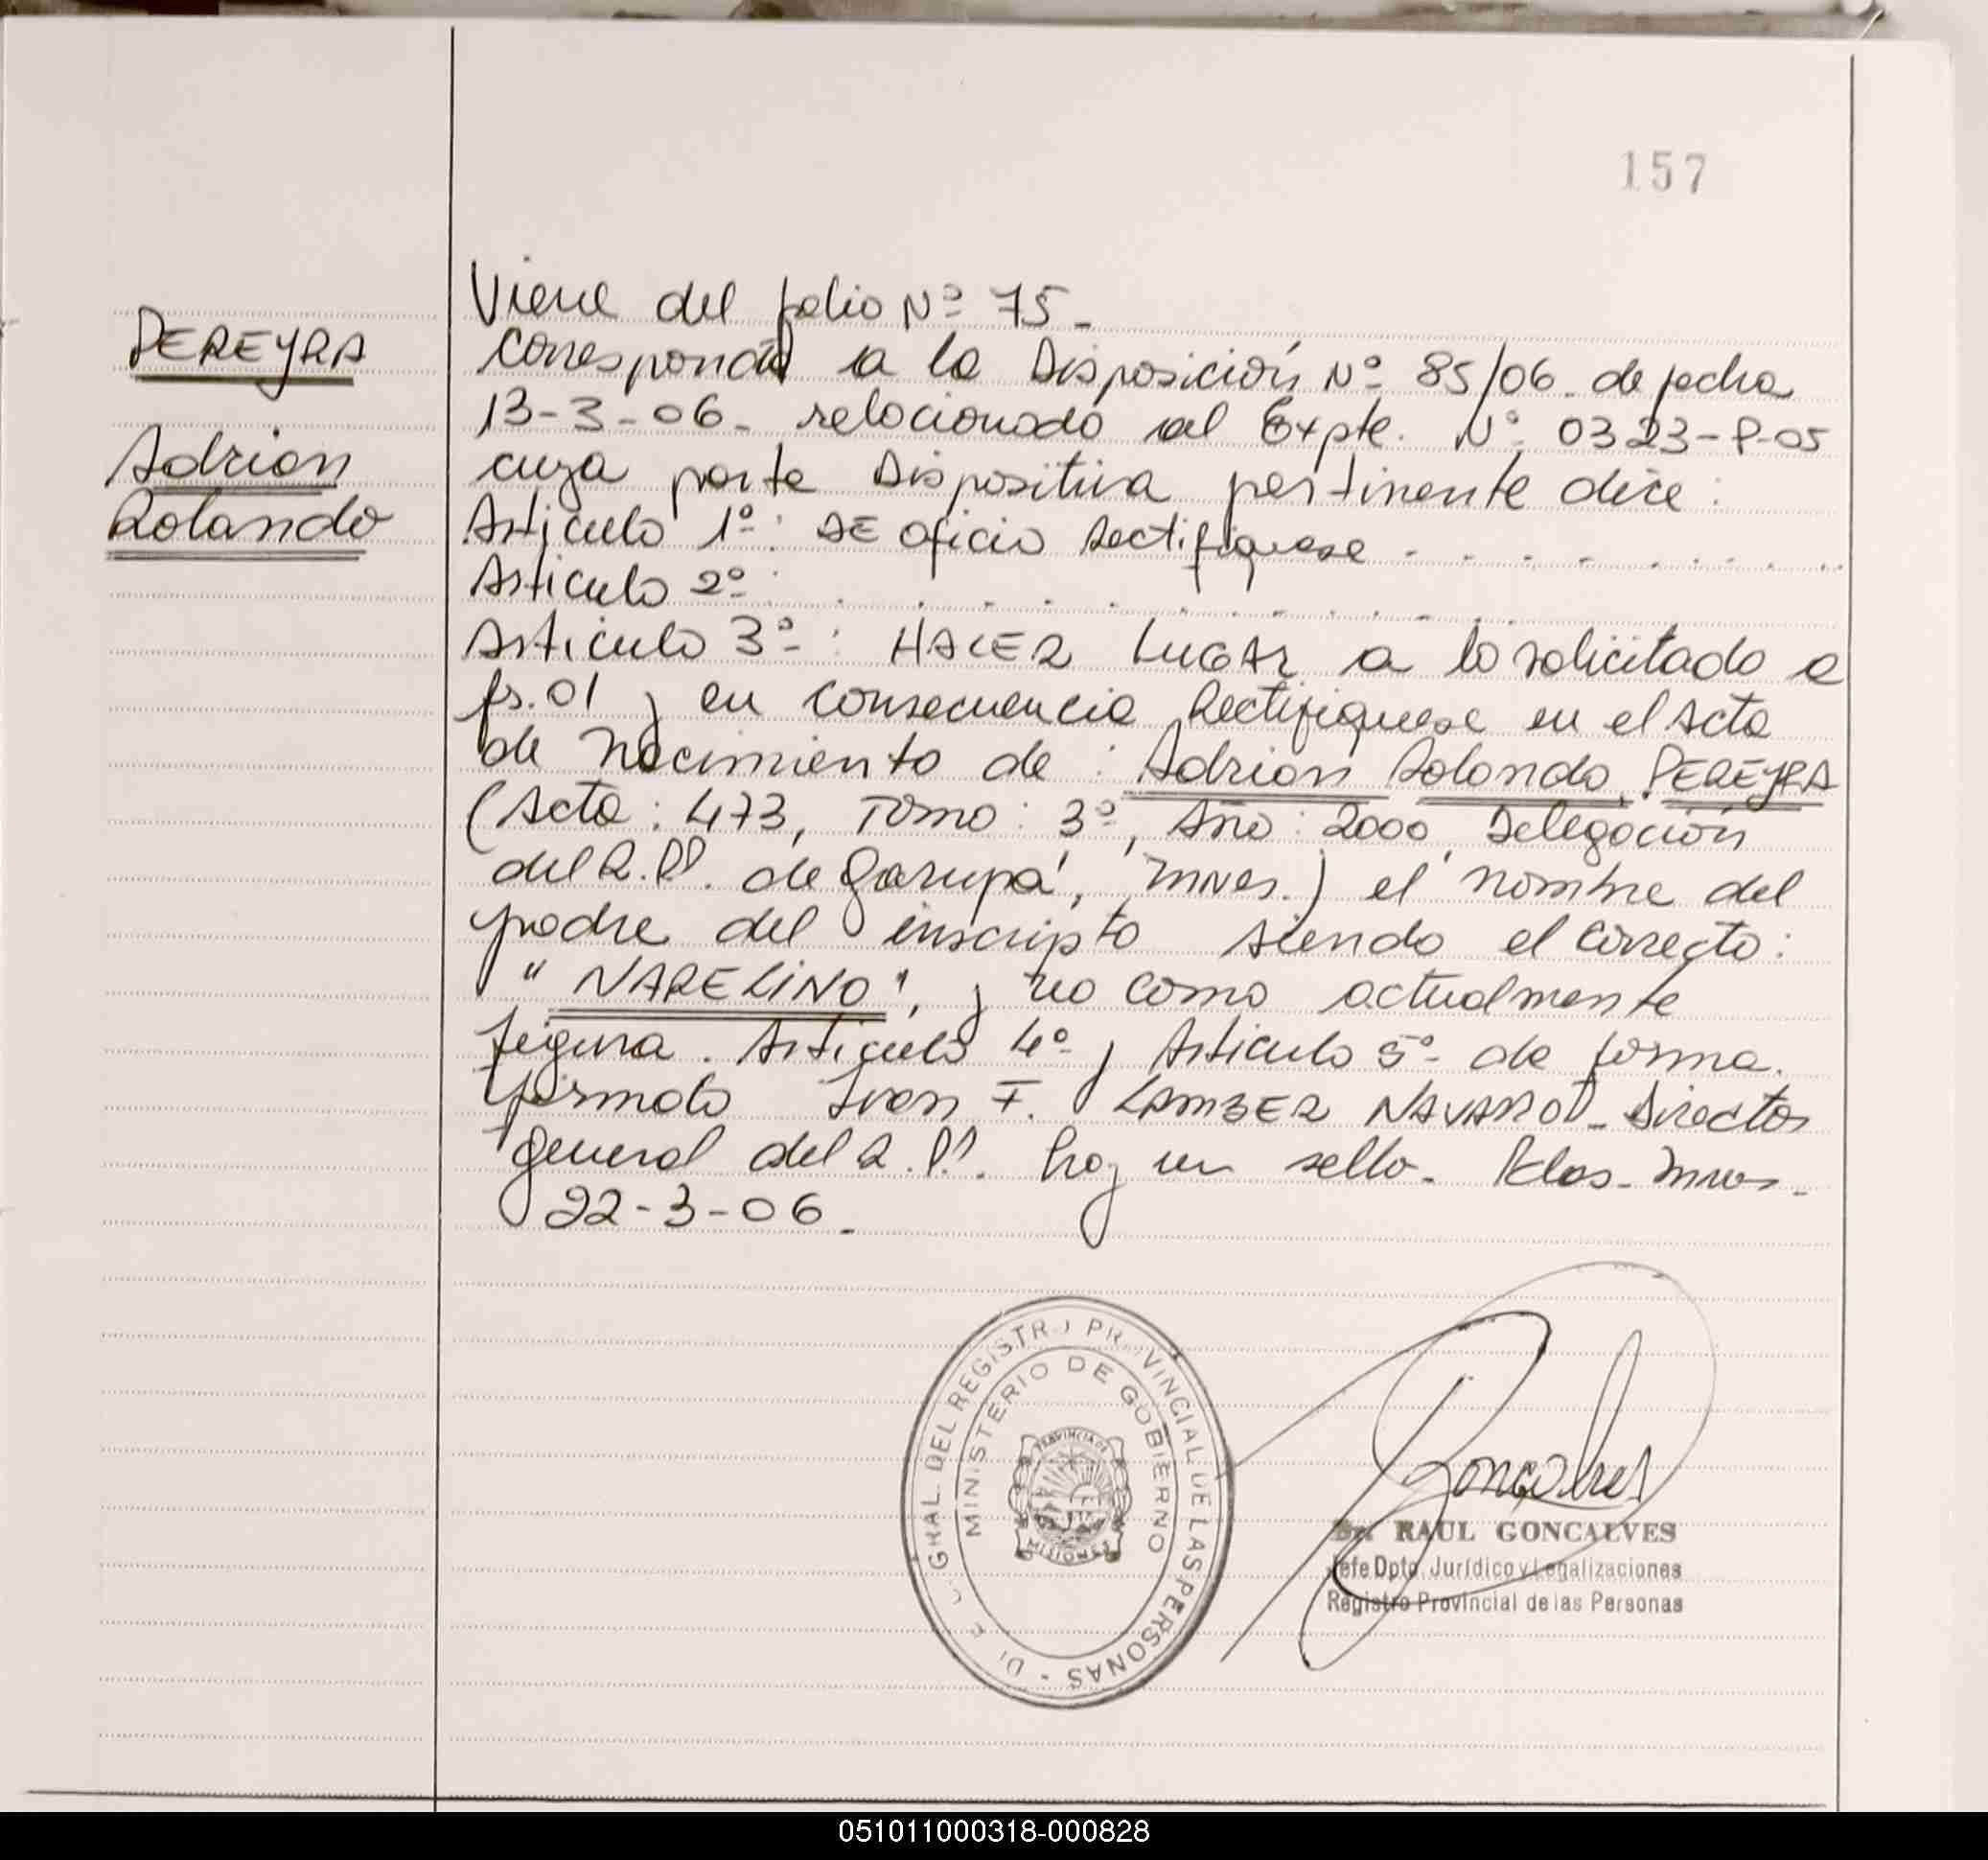 157
PEREYRA
Adrian
Rolando
Viene del folio Nº 75_
Corresponde a la Disposición Nº 85/06_ de fecha
13-3-06_ relacionado al Expte. Nº 0323-P-05
cuya parte Dispositiva pertinente dice:
Artículo 1º: DE oficio Rectifiquese - - - - - - -
Artículo 2º: . . . . . . . . . .
Artículo 3º: HACER LUGAR a lo solicitado a
fs.01 y en consecuencia Rectifiquese en el Acta
de nacimiento de: Adrian Rolando PEREYRA
(Acta: 473, Tomo: 3º, Año: 2000 Delegación
del R.P. de Garupá, Mnes.) el nombre del
padre del inscripto siendo el correcto:
"NARELINO", y no como actualmente
figura. Artículo 4º y Artículo 5º de forma.
firmado Ivan F. LAMBER NAVARRO_ Director
general del R.P. hay un sello_ Pdas_ Mnes_
22-3-06_
GRAL. DEL REGISTRO PROVINCIAL DE LAS PERSONAS -
MINISTERIO DE GOBIERNO
PROVINCIA DE
MISIONES
Goncalves
Dr. RAUL GONCALVES
Jefe Dpto. Jurídico y Legalizaciones
Registro Provincial de las Personas
051011000318-000828